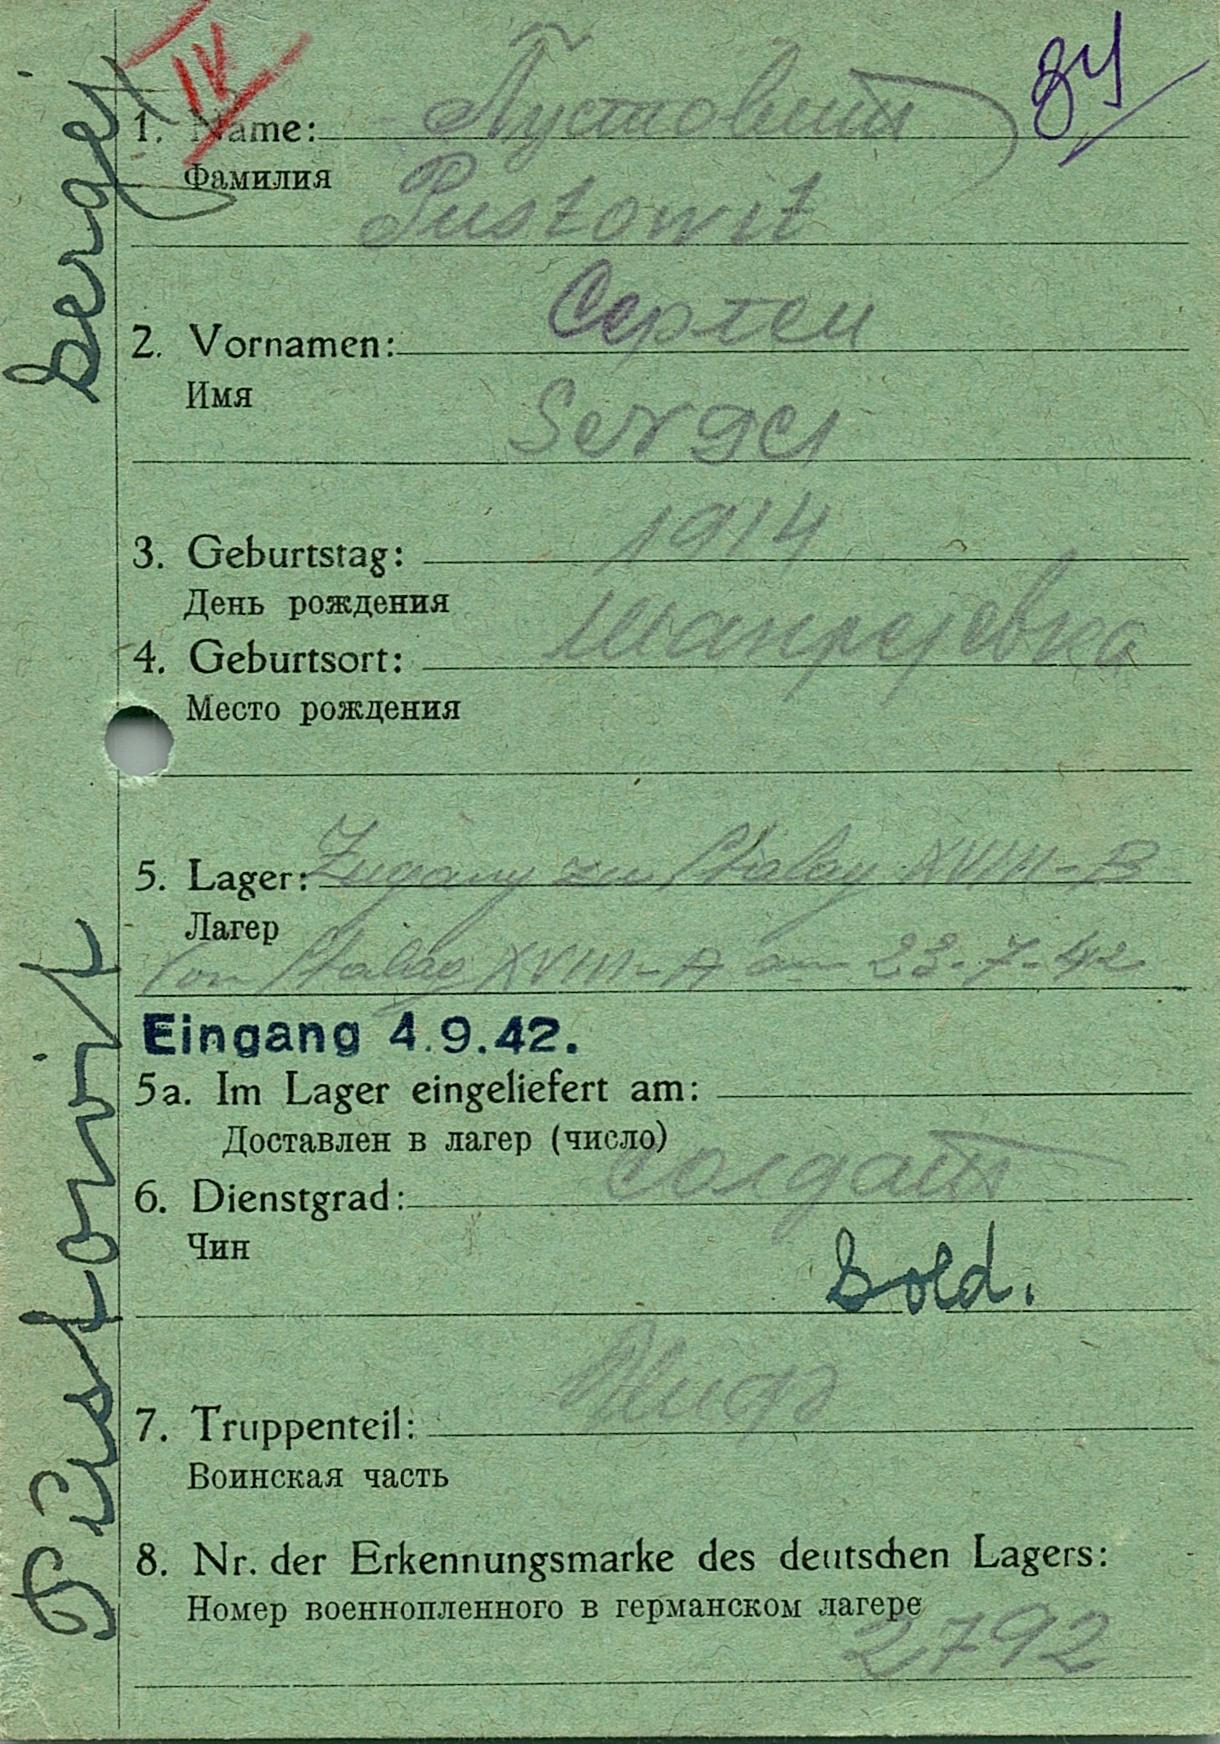 IV
84
1. Name: Пустовит
Фамилия
Pustowit
2. Vornamen: Сергеи
Имя
Sergei
3. Geburtstag: 1914
День рождения
4. Geburtsort:
Место рождения
5. Lager: Zugang zu Stalag XVIII-B
Лагерь
von Stalag XVIII-A am 23.7.42
Eingang 4.9.42.
5a. Im Lager eingeliefert am:
Доставлен в лагер (число)
6. Dienstgrad: солдат
Чин
Sold.
7. Truppenteil:
Воинская часть
8. Nr. der Erkennungsmarke des deutschen Lagers:
Номер военнопленного в германском лагере
2792
Pustowit Sergej